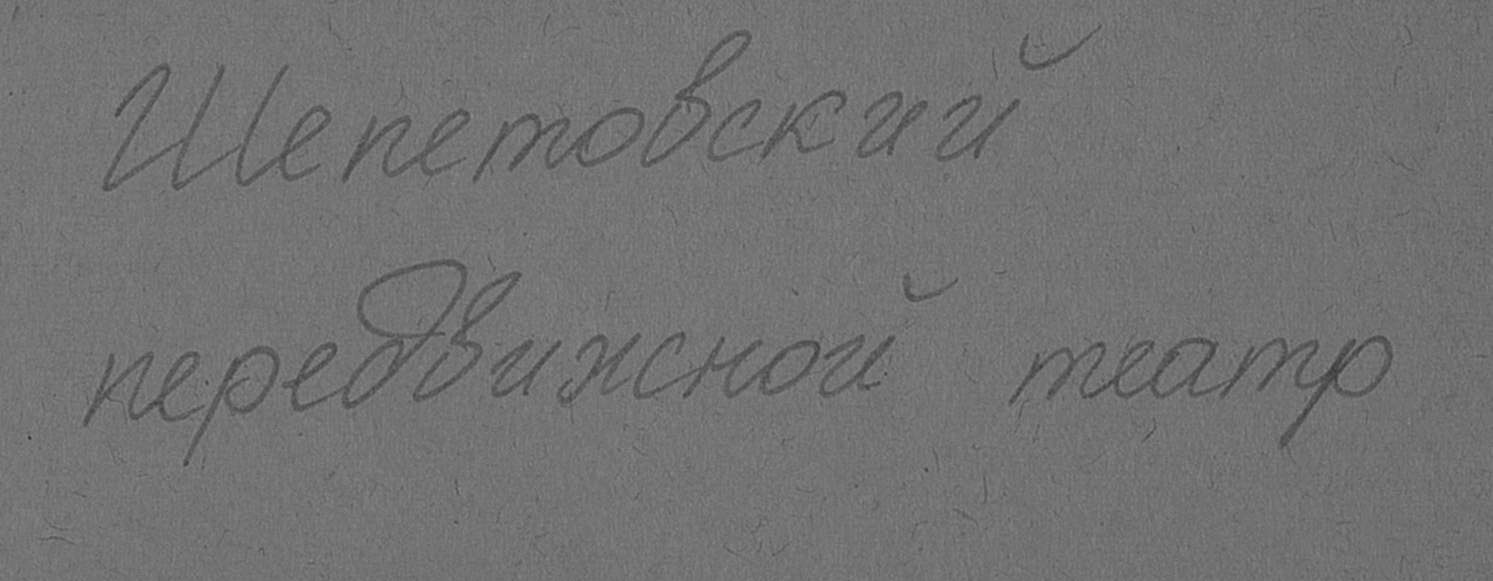 Шепетовский
передвижной театр